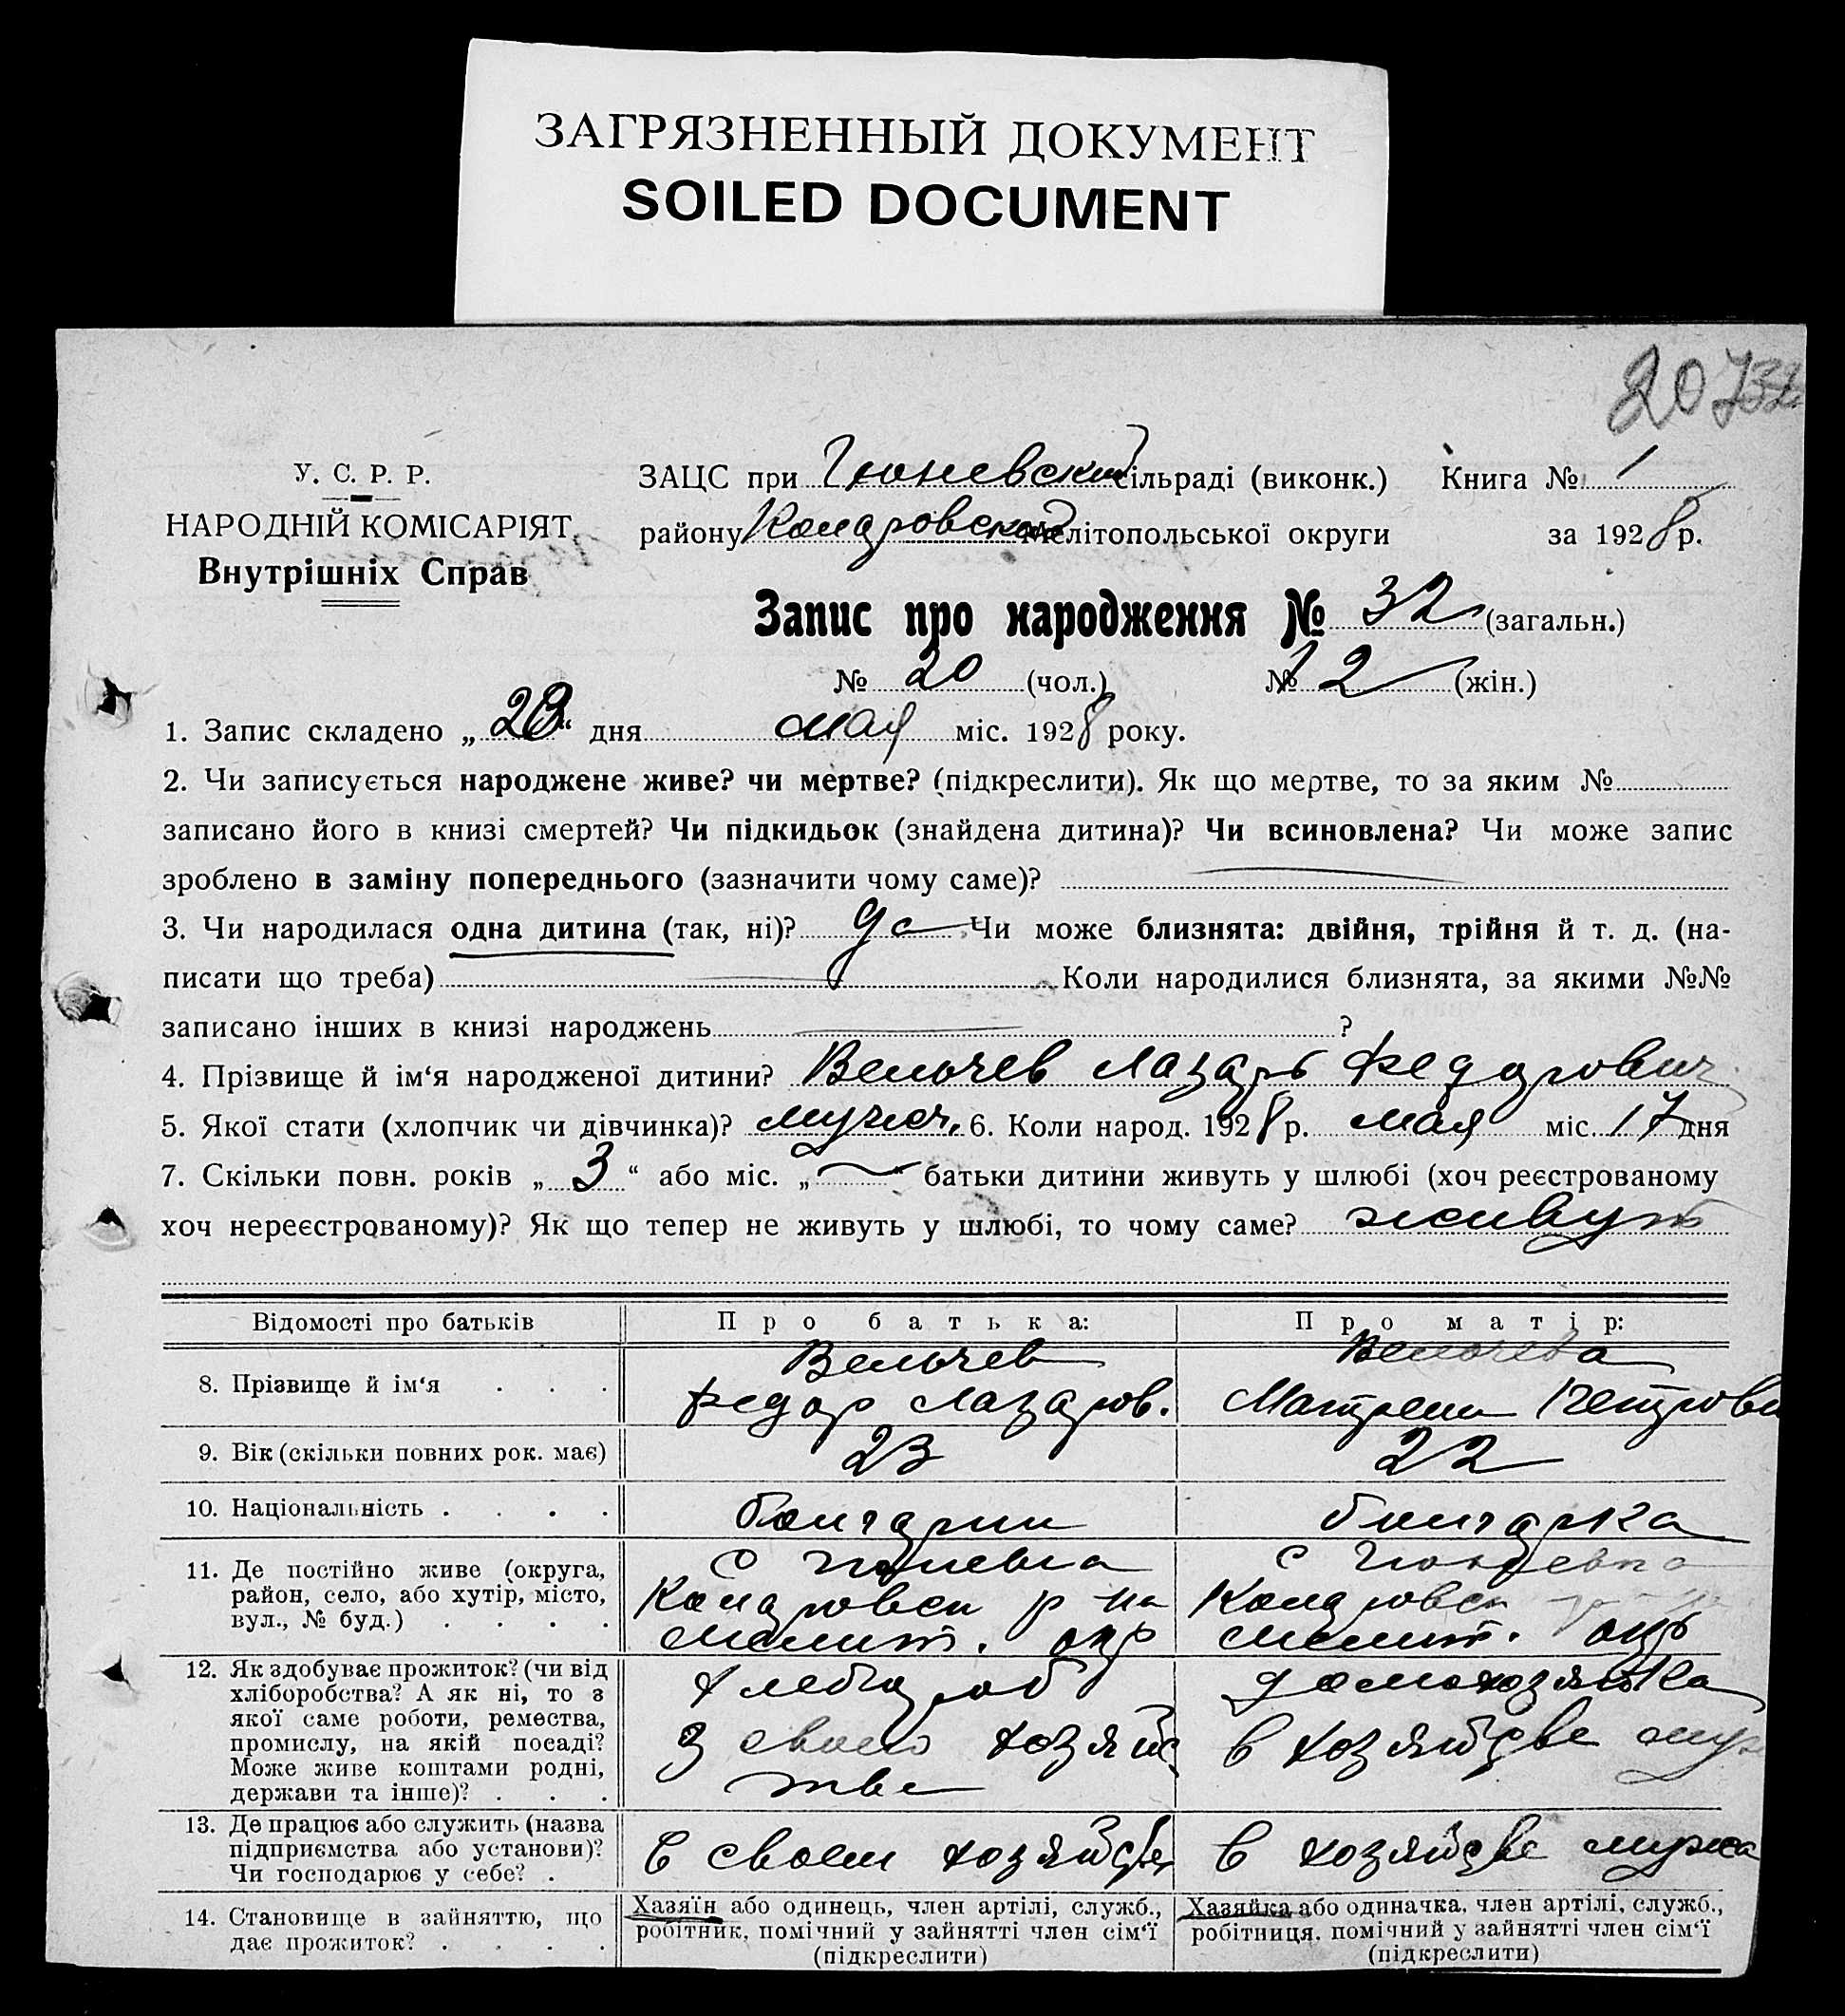 ЗАГРЯЗНЕННЫЙ ДОКУМЕНТ
SOILED DOCUMENT
20
32
У. С. Р. Р.
НАРОДНІЙ КОМІСАРІЯТ
Внутрішніх Справ
ЗАЦС при Гюневской сільраді (виконк.) Книга № 1
району Коларовской Мелітопольської округи за 1928 р.
Запис про народження № 32 (загальн.)
№ 20 (чол.) № 12 (жін.)
1. Запис складено „23“ дня мая міс. 1928 року.
2. Чи записується народжене живе? чи мертве? (підкреслити). Як що мертве, то за яким №
записано його в книзі смертей? Чи підкидьок (знайдена дитина)? Чи всиновлена? Чи може запис
зроблено в заміну попереднього (зазначити чому саме)?
3. Чи народилася одна дитина (так, ні)? да Чи може близнята: двійня, трійня й т. д. (на-
писати що треба) Коли народилися близнята, за якими №№
записано інших в книзі народжень ?
4. Прізвище й ім‘я народженої дитини? Вельчев Лазарь Федорович
5. Якої стати (хлопчик чи дівчинка)? мужск. 6. Коли народ. 1928 р. мая міс. 17 дня
7. Скільки повн. років „3“ або міс. „—“ батьки дитини живуть у шлюбі (хоч реєстрованому
хоч нереєстрованому)? Як що тепер не живуть у шлюбі, то чому саме? живут
Відомості про батьків Про батька: Про матір:
8. Прізвище й ім‘я . . . Вельчев Федор Лазаров. Вельчева Матрена Петровн
9. Вік (скільки повних рок. має) 23 22
10. Національність . . . . болгарин болгарка
11. Де постійно живе (округа,
район, село, або хутір, місто,
вул., № буд.) . . . .
с Гюневка
Коларовск р-на
Мелит. окр
с Гюневка
Коларовск
Мелит. окр
12. Як здобуває прожиток? (чи від
хліборобства? А як ні, то з
якої саме роботи, ремества,
промислу, на якій посаді?
Може живе коштами родні,
держави та інше)? . . .
хлебороб
в своем хозяйс
тве
домохозяйка
в хозяйстве муж
13. Де працює або служить (назва
підприємства або установи)?
Чи господарює у себе? .
в своем хозяйстве
в хозяйстве мужа
14. Становище в зайняттю, що
дає прожиток? . . . .
Хазяїн або одинець, член артілі, служб.,
робітник, помічний у зайнятті член сім‘ї
(підкреслити)
Хазяйка або одиначка, член артілі, служб.,
робітниця, помічний у зайнятті член сім‘ї
(підкреслити)